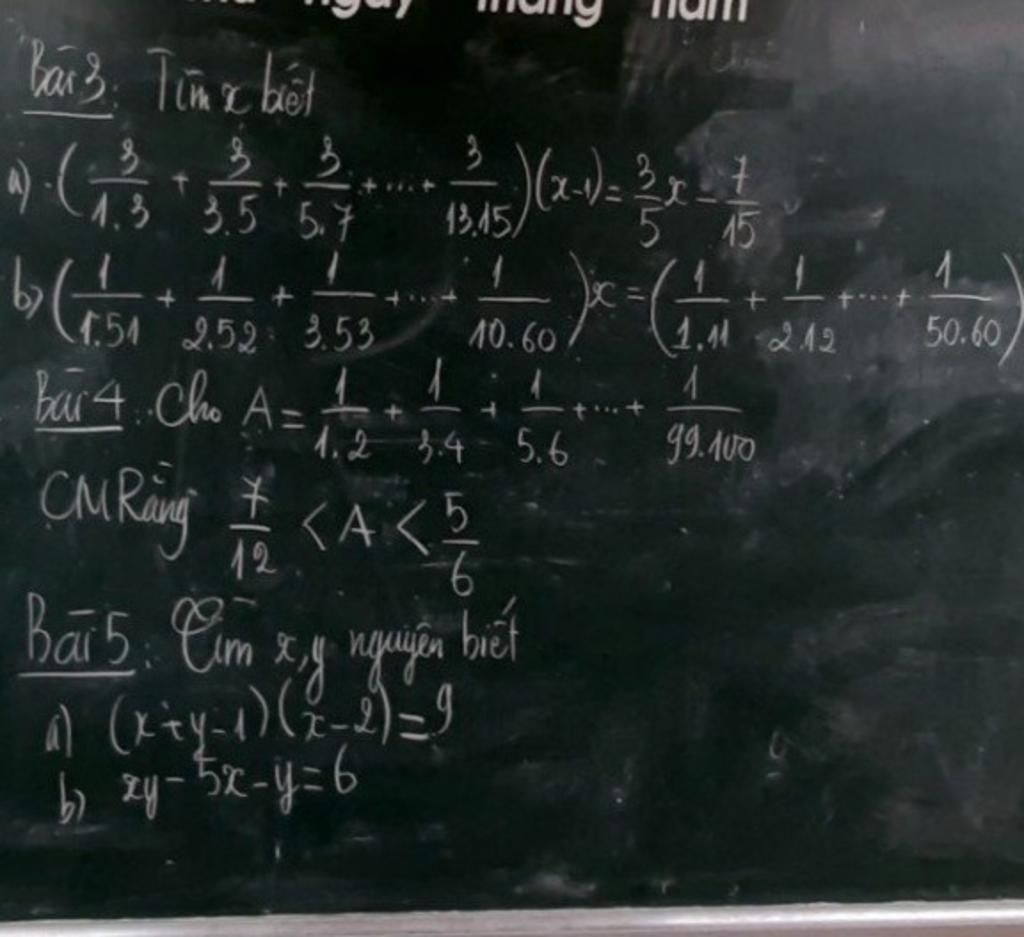 ngày tháng năm
Bài 3: Tìm x biết
a) (3/1.3 + 3/3.5 + 3/5.7 + ... + 3/13.15)(x-1) = 3/5 x - 7/15
b) (1/1.51 + 1/2.52 + 1/3.53 + ... + 1/10.60)x = (1/1.11 + 1/2.12 + ... + 1/50.60)
Bài 4: Cho A = 1/1.2 + 1/3.4 + 1/5.6 + ... + 1/99.100
CM Rằng 7/12 < A < 5/6
Bài 5: Tìm x,y nguyên biết
a) (x+y-1)(x-2)=9
b) xy-5x-y=6